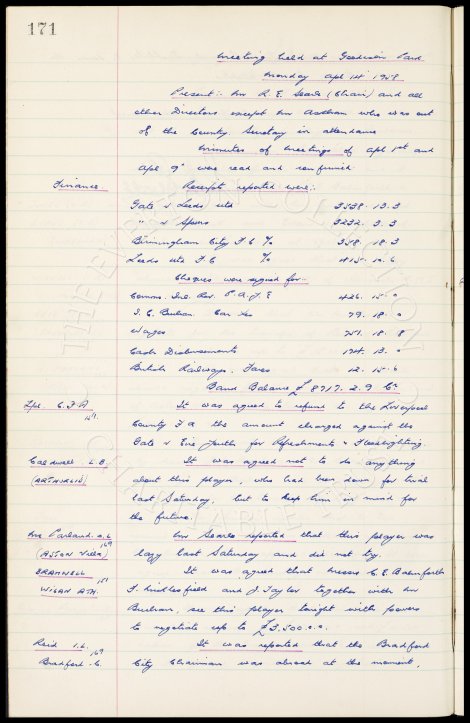 171
Meeting held at Goodison Park
Monday Apl 14 1958
Present:- Mr R. E. Searle (Chair) and all
other Directors except Mr who was out
of the County. Secretary in attendance
Minutes of Meetings of Apl 1st and
Apl 9th were read and confirmed
Finance
Receipts reported were:-
Gate v Leeds utd 3538. 13. 3
" v Spurs 3232. 3. 3
Birmingham City F C % 358. 18. 3
Leeds utd F. C %
Cheques were signed for:-
Comms. Inl. Rev. P. A. Y. E 426. 15. 0
I. C. Buchan. Car 79. 18. 0
Wages 751. 18. 8
Cash Disbursements 174. 13. 0
British Railways. Fares 12. 15. 6
Bank Balance £8717. 2. 9 Cr
Lpl. C. F. A
151.
It was agreed to refund to the Liverpool
County F A the amount charged against the
Gate v Eire Youth for Refreshments & Floodlighting.
Caldwell. L. B.
It was agreed not to do anything
about this player, who had been down for trial
last Saturday, but to keep him in mind for
the future.
Mc Parland. O. L
169
(Aston Villa)
Mr Searle reported that this player was
lazy last Saturday and did not try.
Bramwell
151
Wigan Ath.
It was agreed that Messrs C. E. Balmforth
F. Micklesfield and J Taylor together with Mr
Buchan, see this player tonight with powers
to negotiate up to £3,500.0.0.
Reid I. L.
169
Bradford. C.
It was reported that the Bradford
City Chairman was abroad at the moment,